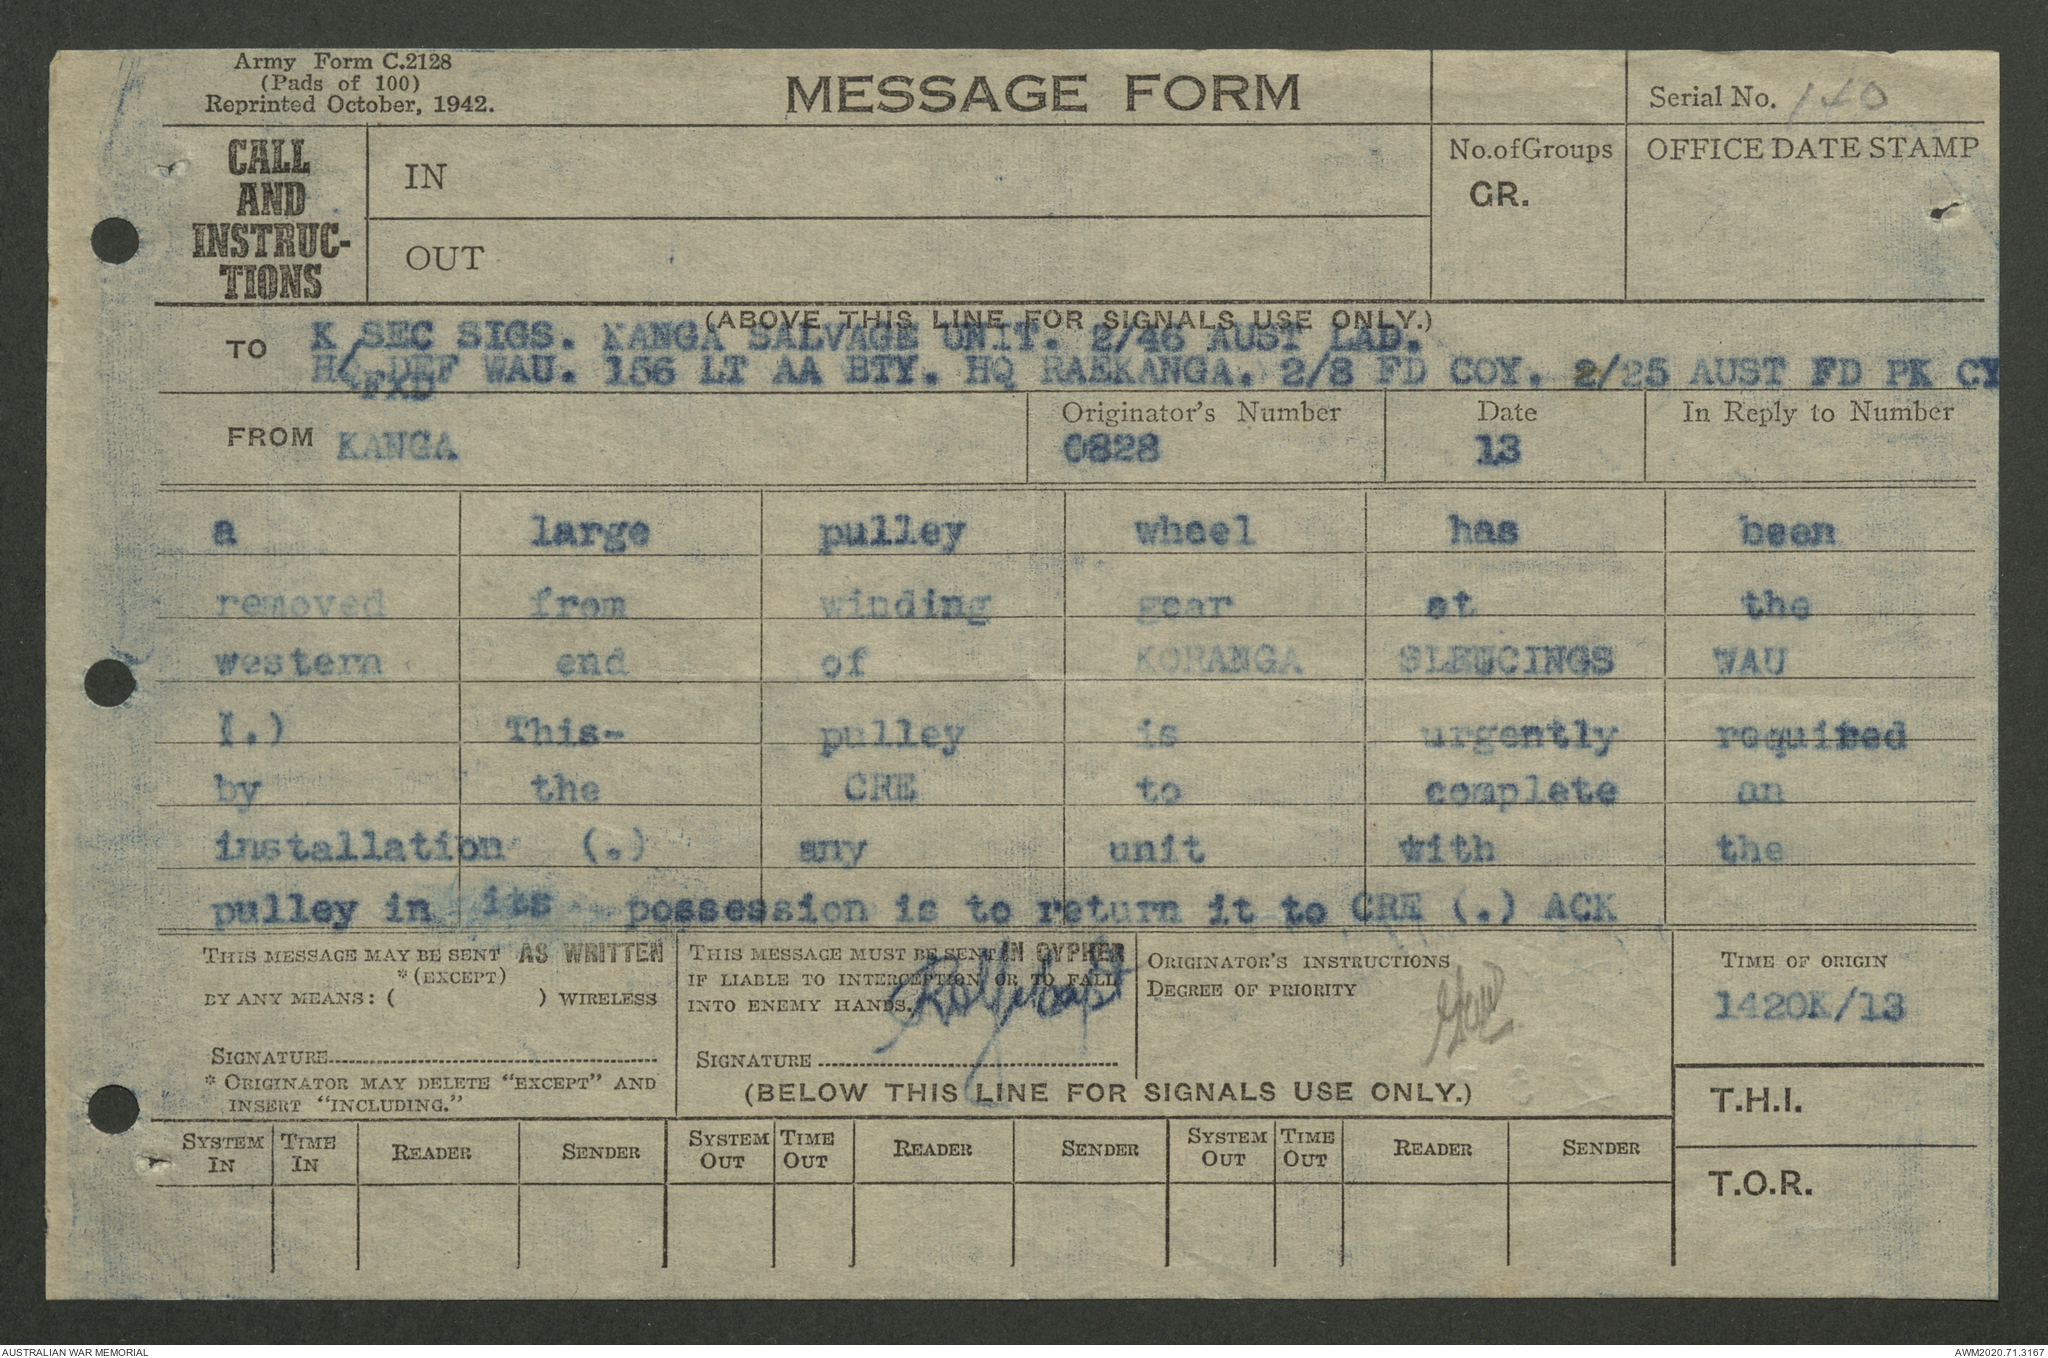 Army Form C.2128
(Pads of 100)
Reprinted October, 1942.
MESSAGE FORM
Serial No. 140
CALL
AND
INSTRUC-
TIONS
IN
OUT
No. of Groups
GR.
OFFICE DATE STAMP
(ABOVE THIS LINE FOR SIGNALS USE ONLY.)
TO K SEC SIGS. KANGA SALVAGE UNIT. 2/46 AUST LAD.
HQ/FXD DEF WAU. 156 LT AA BTY. HQ RAEKANGA. 2/8 FD COY. 2/25 AUST FD PK CY
FROM KANGA
Originator's Number
0828
Date
13
In Reply to Number
a large pulley wheel has been
removed from winding gear at the
western end of KORANGA SLEUCINGS WAU
(.) This- pulley is urgently required
by the CRE to complete an
installation (.) any unit with the
pulley in its possession is to return it to CRE (.) ACK
THIS MESSAGE MAY BE SENT AS WRITTEN
*(EXCEPT)
BY ANY MEANS: ( ) WIRELESS
SIGNATURE
* ORIGINATOR MAY DELETE "EXCEPT" AND
INSERT "INCLUDING."
THIS MESSAGE MUST BE SENT IN CYPHER
IF LIABLE TO INTERCEPTION OR TO FALL
INTO ENEMY HANDS.
Capt
SIGNATURE
ORIGINATOR'S INSTRUCTIONS
DEGREE OF PRIORITY
TIME OF ORIGIN
1420K/13
(BELOW THIS LINE FOR SIGNALS USE ONLY.)
T.H.I.
T.O.R.
SYSTEM IN
TIME IN
READER
SENDER
SYSTEM OUT
TIME OUT
READER
SENDER
SYSTEM OUT
TIME OUT
READER
SENDER
AUSTRALIAN WAR MEMORIAL
AWM2020.71.3167